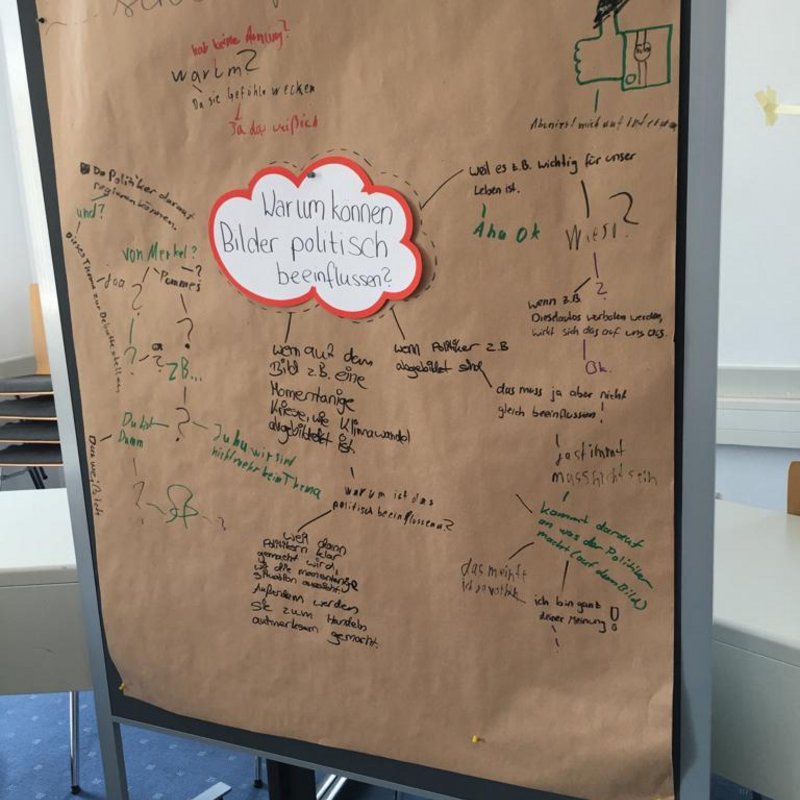 warum?
Da sie Gefühle wecken
Ja das weiß ich
Warum können
Bilder politisch
beeinflussen?
weil es z.B. wichtig für unser
Leben ist.
Aha ok
Wieso?
?
wenn z.B.
Dieselautos verboten werden,
wirkt sich das auf uns aus.
Ok.
Da Politiker darauf
regieren können.
und?
von Merkel?
Pommes
?
?
?
?
z.B...
?
Du bist
Dumm
Juhu wir sind
nicht mehr beim Thema
?
?
wenn auf dem
Bild z.B. eine
Momentanige
Kriese, wie Klimawandel
abgebildet ist
warum ist das
politisch beeinflussend?
weil dann
Politikern klar
gemacht wird,
wie die momentanige
Situation aussieht.
Außerdem werden
sie zum Handeln
aufmerksam gemacht.
wenn Politiker z.B
abgebildet sind
das muss ja aber nicht
gleich beeinflussen!
ja stimmt
muss nicht sein
kommt darauf
an was der Politiker
macht (auf dem Bild)
das meinte
ich ja
ich bin ganz
deiner Meinung!